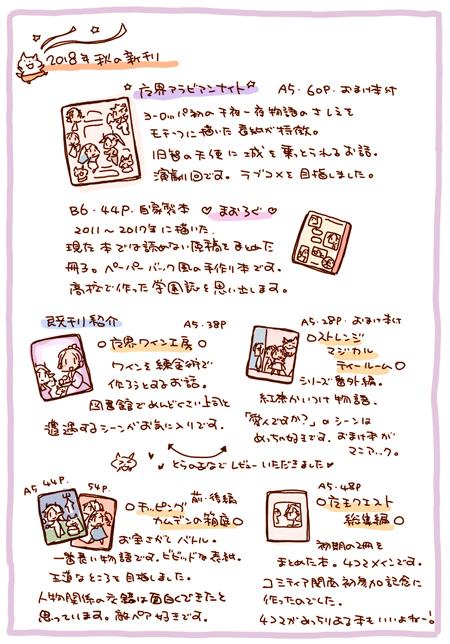 2018年秋の新刊
夜界アラビアンナイト
A5・60P・おまけ本付
ヨーロッパ初の千夜一夜物語のさし絵を
モチーフに描いた表紙が特徴。
旧知の天使に城を乗っとられるお話。
演劇回です。ラブコメを目指しました。
B6・44P・自家製本 ♡まおろぐ♡
2011〜2017年に描いた
現在本では読めない原稿をまとめた
冊子。ペーパーバック風の手作り本です。
高校で作った学園誌を思い出します。
既刊紹介
A5・38P
夜界ワイン工房
ワインを錬金術で
作ろうとするお話。
図書館でめんどくさい上司と
遭遇するシーンがお気に入りです。
A5・28P・おまけ本付
ストレンジ
マジカル
ティールーム
シリーズ番外編。
紅茶かいつけ物語。
「愛人ですか?」のシーンは
めっちゃ好きです。おまけ本が
マニアック。
とらのあなでレビューいただきました♥
A5 44P. 54P.
前・後編
ホッピング
カムデンの箱庭
お宝さがしバトル。
一番長い物語です。ビビッドな表紙。
王道なところを目指しました。
人物関係の交錯は面白くできたと
思っています。敵ペア好きです。
A5・48P
夜王クエスト
総集編
初期の2冊を
まとめた本。4コマメインです。
コミティア関西初参加記念に
作ったのでした。
4コマがめっちりよる本もいいよねー!